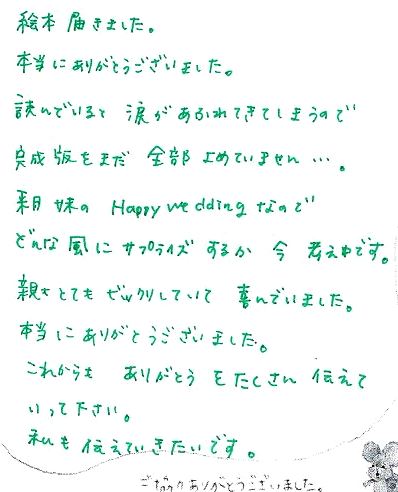 絵本 届きました。
本当にありがとうございました。
読んでいると 涙があふれてきてしまうので
完成版をまだ 全部 よめていません…。
来月 妹の Happy wedding なので
どんな 風に サプライズ するか 今 考え中です。
親も とても ビックリしていて 喜んでいました。
本当に ありがとうございました。
これからも ありがとう を たくさん 伝えて
いって下さい。
私も 伝えていきたいです。
ありがとうございました。